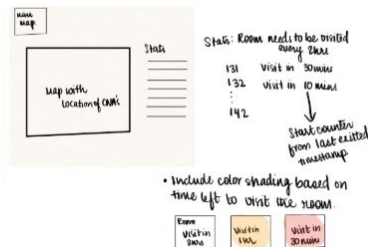 mini
map
Map with
location of CNAs
Stats
Stats: Room needs to be visited
every 2hrs
131 visit in 30 mins
132 visit in 10 mins
142
Start counter
from last exited
timestamp
• Include color shading based on
time left to visit the room.
Room
Visit in
2hrs
Visit in
1hr
Visit in
30 mins